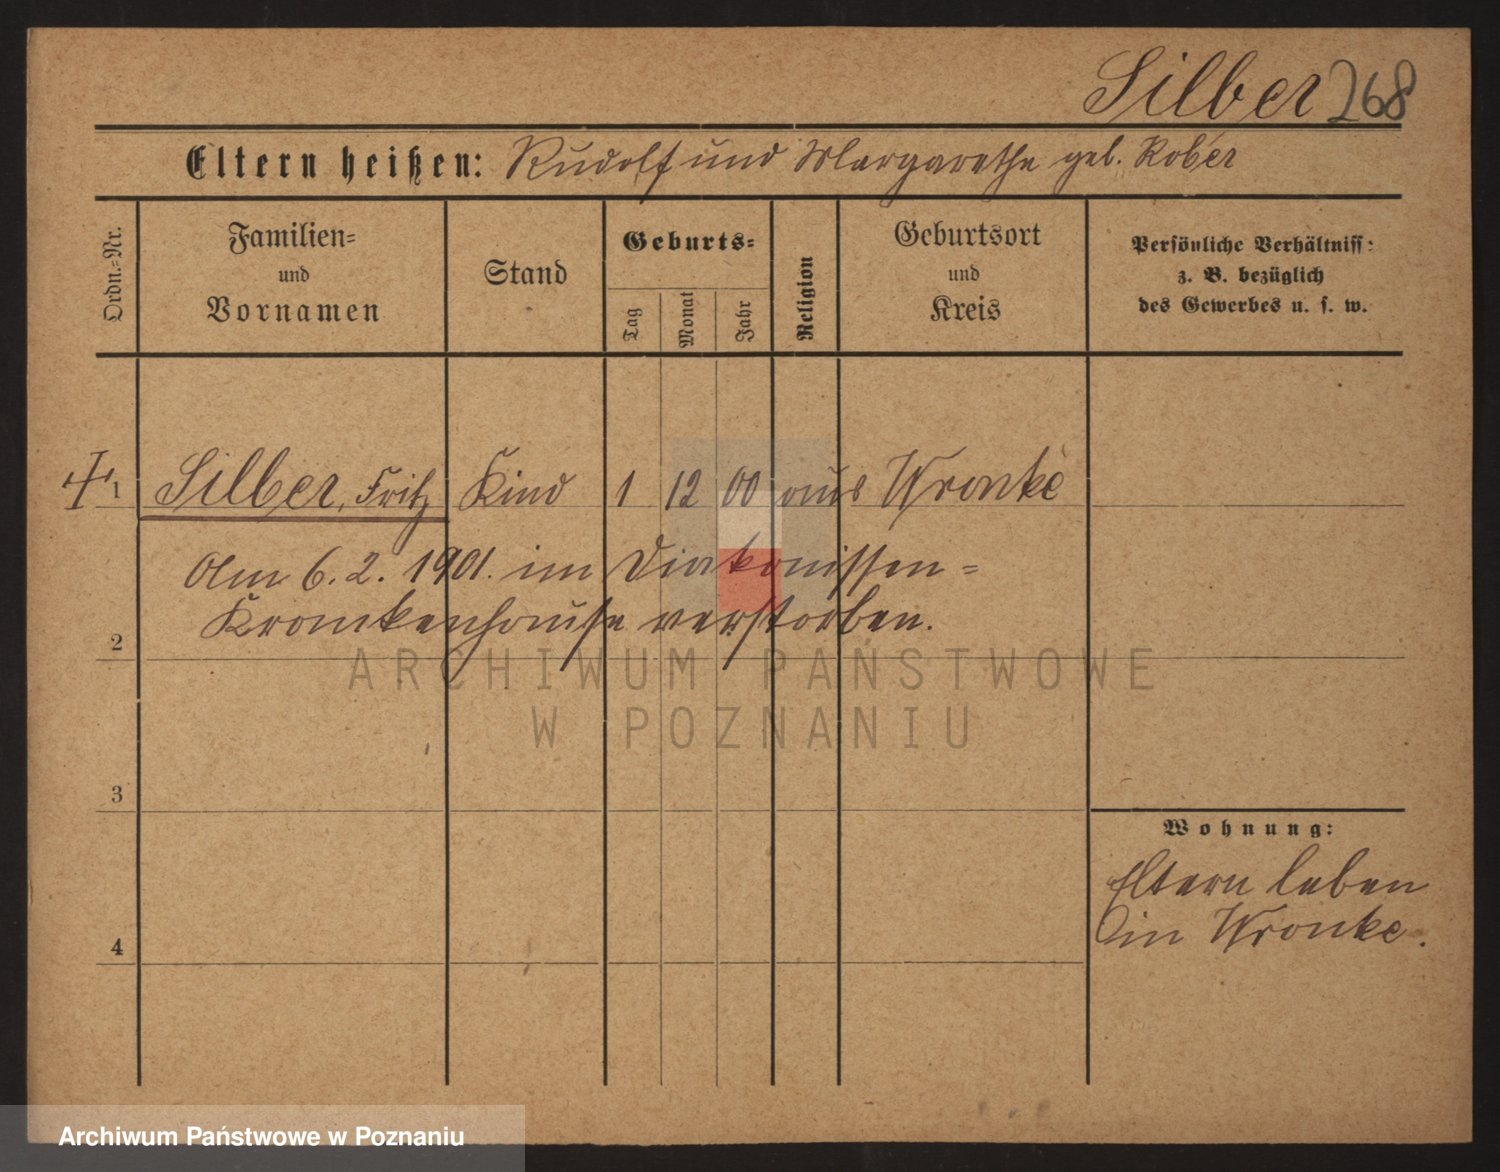 Silber 268
Eltern heißen: Rudolf und Margarethe geb. Rober
Ordn.=Nr.
Familien=
und
Vornamen
Stand
Geburts=
Tag
Monat
Jahr
Religion
Geburtsort
und
Kreis
Persönliche Verhältniss:
z. B. bezüglich
des Gewerbes u. s. w.
1 Silber, Fritz Kind 1 12 00 aus Wronke
Am 6. 2. 1901. im Diakonissen=
Krankenhause verstorben.
2
ARCHIWUM PAŃSTWOWE
W POZNANIU
3
Wohnung:
Eltern leben
in Wronke.
4
Archiwum Państwowe w Poznaniu